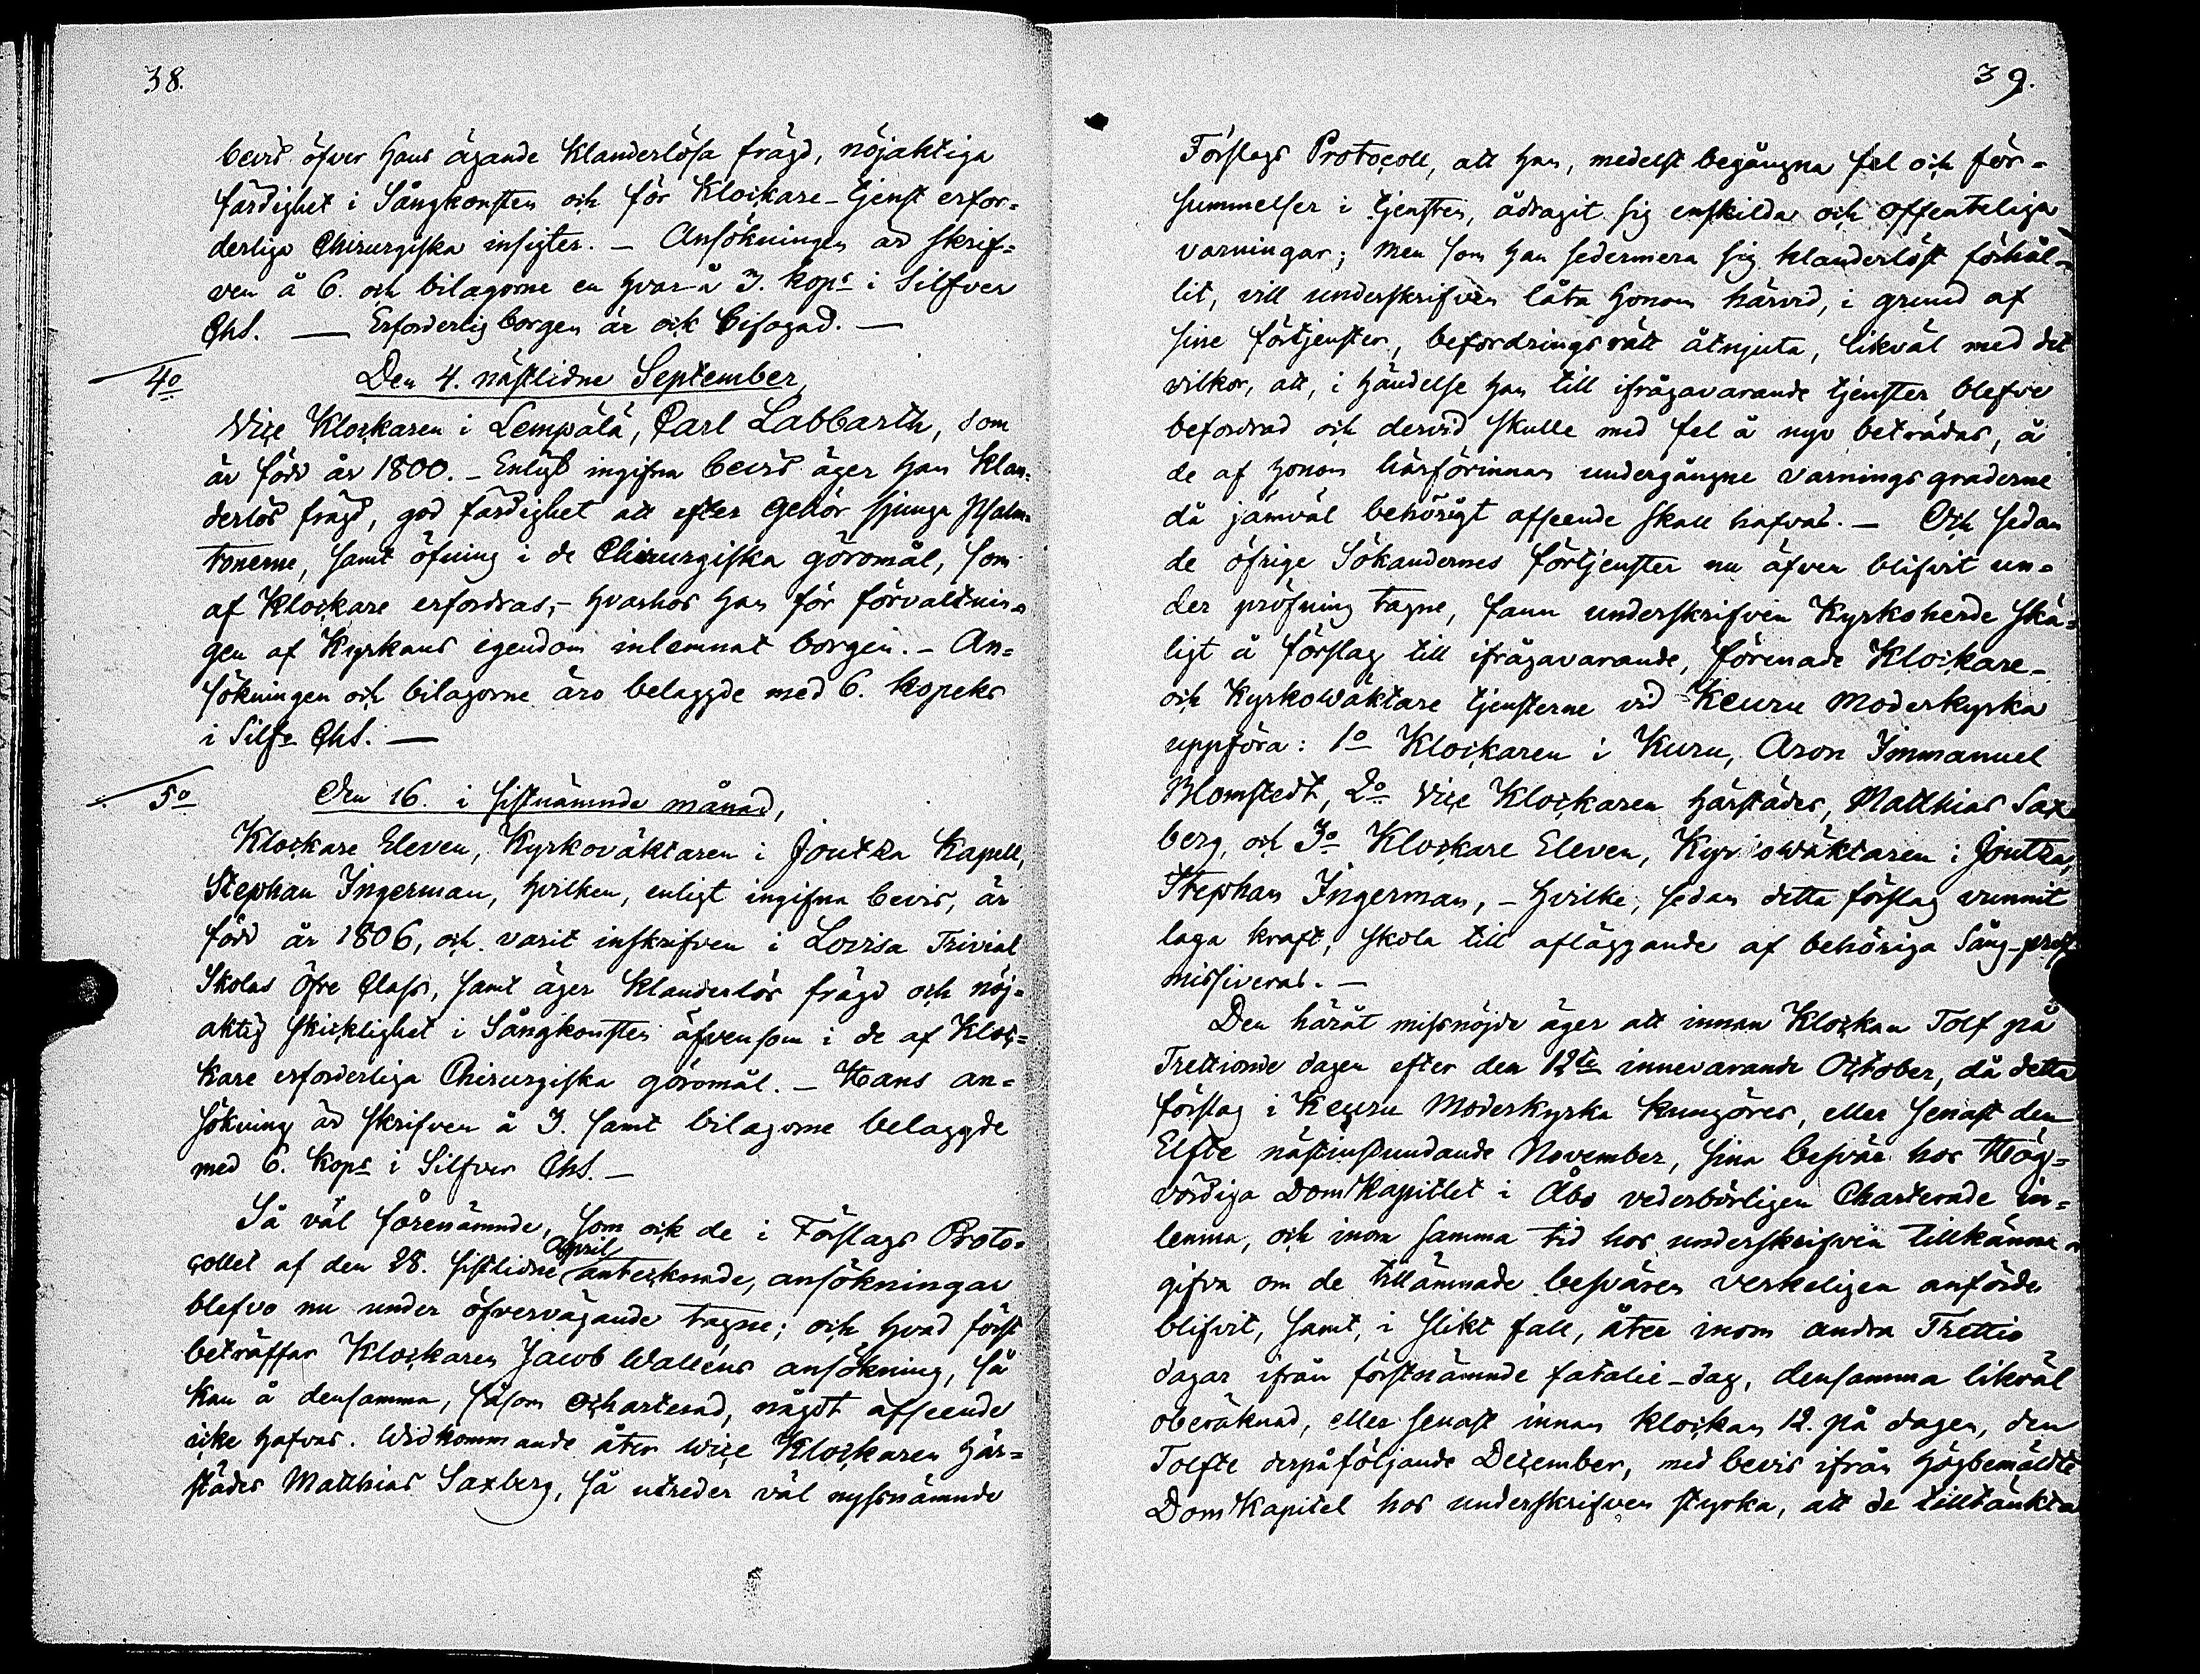 38.
bevis öfver Hans ägande klanderlösa frägd, nöjaktiga
färdighet i Sångkonsten och för Klockare-tjenst erfor=
derliga Chirurgiska insigter. — Ansökningen är skrif=
ven å 6. och bilagorne en hvar å 3. kops i Silfver
Chs. — Erforderlig borgen är ock bifogad. —
4o Den 4. nästlidne September,
Vice Klockaren i Lempälä, Carl Labbarth, som
är född år 1800. — Enligt ingifna bevis äger han klan=
derlös frägd, god färdighet att efter Gehör sjunga Psalm=
tonerne, samt öfning i de Chirurgiska göromål, som
af Klockare erfordras, – hvarhos han för förvaltnin=
gen af Kyrkans egendom inlemnat borgen. — An=
sökningen och bilagorne äro belaggde med 6. kopeks
i Silfr Chs. —
5o Den 16. i sistnämnde månad,
Klockare Eleven, Kyrkoväktaren i Joutza Kapell,
Stephan Ingerman, hvilken, enligt ingifna bevis, är
född år 1806, och varit inskrifven i Lovisa Trivial
Skolas Öfre Class, samt äger klanderlös frägd och nöj=
aktig skicklighet i Sångkonsten äfvensom i de af Kloc=
kare erforderliga Chirurgiska göromål. — Hans an=
sökning är skrifven å 3. samt bilagorne belaggde
med 6. kops i Silfver Chs. —
Så väl förenämnde, som ock de i Förslags Proto=
collet af den 28. sistlidne April antecknade, ansökningar
blefvo nu under öfvervägande tagne; och hvad först
beträffar Klockaren Jacob Walléns ansökning, så
kan å densamma, såsom ocharterad, något afseende
icke hafvas. Widkommande åter Vice Klockaren här=
städes Matthias Saxberg, så utreder väl nyssnämnde
39.
Förslags Protocoll, att han, medelst begångna fel och för=
summelser i tjensten, ådragit sig enskilda och offenteliga
varningar; men som han sedermera sig klanderlöst förhål=
lit, vill underskrifven låta honom härvid, i grund af
sine förtjenster, befordringsrätt åtnjuta, likväl med det
vilkor, att, i händelse han till ifrågavarande tjenster blefve
befordrad och dervid skulle med fel å nyo beträdas, å
de af honom härförinnan undergångne varningsgraderne
då jämväl behörigt afseende skall hafvas. — Och sedan
de öfrige Sökandernes förtjenster nu äfven blifvit un=
der pröfning tagne, fann underskrifven Kyrkoherde skä=
ligt å förslag till ifrågavarande, förenade Klockare-
och Kyrkowäktare tjensterne vid Keuru Moderkyrka
uppföra: 1o Klockaren i Kuru, Aron Immanuel
Blomstedt, 2o Vice Klockaren härstädes, Matthias Sax
berg, och 3o Klockare Eleven, Kyrkowäktaren i Joutza,
Stephan Ingerman, – hvilke, sedan detta förslag vunnit
laga kraft, skola till afläggande af behöriga Sång-prof
missiveras. —
Den häråt missnöjde äger att innan Klockan Tolf på
Trettionde dagen efter den 12te innevarande October, då detta
förslag i Keuru Moderkyrka kungöres, eller senast den
Elfte nästinstundande November, sina besvär hos Hög=
vördiga DomKapitlet i Åbo vederbörligen Charterade in=
lemna, och inom samma tid hos underskrifven tillkänna
gifva om de tillämnade besvären verkeligen anförde
blifvit, samt, i slikt fall, åter inom andra Trettio
dagar ifrån förstnämnde fatalie-dag, densamma likväl
oberäknad, eller senast innan klockan 12. på dagen, den
Tolfte derpåföljande December, med bevis ifrån Högbemäldte
DomKapitel hos underskrifven styrka, att de tilltänkta